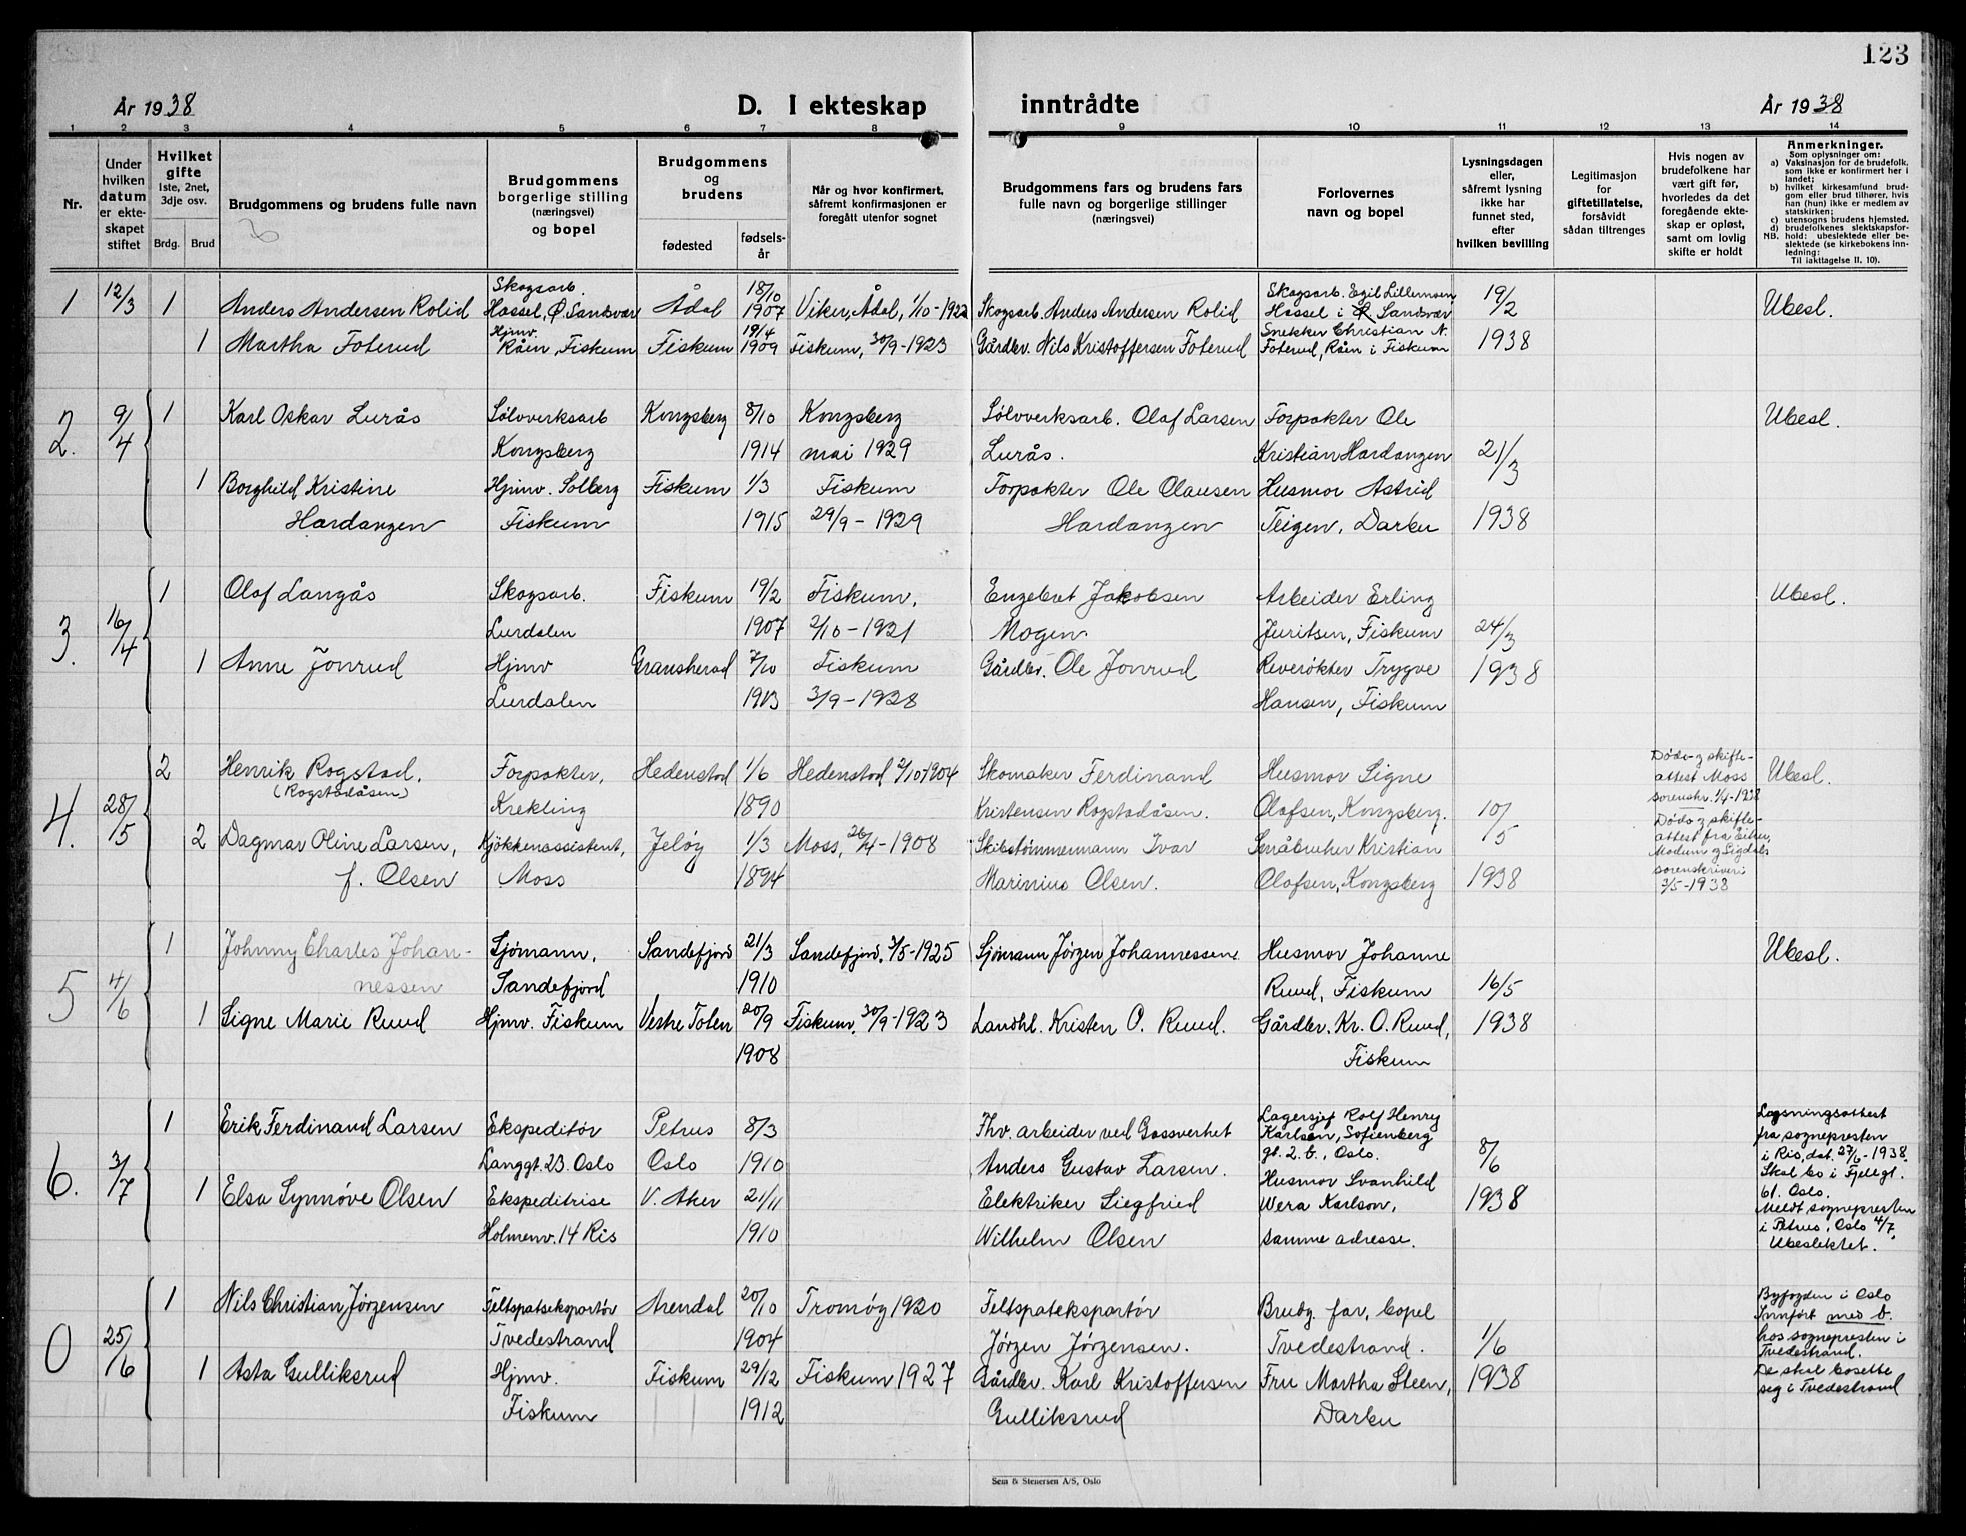 123
År 1938 D. I ekteskap inntrådte År 1938
1 2 3 4 5 6 7 8 9 10 11 12 13 14
Nr.
Under hvilken datum er ekteskapet stiftet
Hvilket gifte 1ste, 2net, 3dje osv.
Brdg. Brud
Brudgommens og brudens fulle navn
Brudgommens borgerlige stilling (næringsvei) og bopel
Brudgommens og brudens
fødested fødselsår
Når og hvor konfirmert, såfremt konfirmasjonen er foregått utenfor sognet
Brudgommens fars og brudens fars fulle navn og borgerlige stillinger (næringsvei)
Forlovernes navn og bopel
Lysningsdagen eller, såfremt lysning ikke har funnet sted, efter hvilken bevilling
Legitimasjon for giftetillatelse, forsåvidt sådan tiltrenges
Hvis nogen av brudefolkene har vært gift før, hvorledes da det foregående ekteskap er opløst, samt om lovlig skifte er holdt
Anmerkninger.
Som oplysninger om:
a) Vaksinasjon for de brudefolk, som ikke er konfirmert her i landet;
b) hvilket kirkesamfund brudgom eller brud tilhører, hvis han (hun) ikke er medlem av statskirken;
c) utensogns brudens hjemsted.
d) brudefolkenes slektskapsforhold: ubeslektede eller beslektede (se kirkebokens innledning:
NB. Til iakttagelse II. 10).
1 12/3 1 Anders Andersen Rolid Skogsarb. Hassel, Ø. Sandsvær Ådal 18/10 1907 Viker, Ådal, 1/10-1922 Skogsarb. Anders Andersen Rolid Skogsarb. Egil Lillemoen, Hassel i Ø Sandsvær 19/2 Ubesl.
1 Martha Foterud Hjmv. Råen, Fiskum Fiskum 19/4 1909 Fiskum, 30/9-1923 Gårdbr. Nils Kristoffersen Foterud Snekker Christian N. Foterud, Råen i Fiskum 1938
2. 9/4 1 Karl Oskar Lurås Sølvverksarb Kongsberg 8/10 Kongsberg Sølvverksarb. Olaf Larsen Forpakter Ole Ubesl.
Kongsberg 1914 mai 1929 Lurås. Kristian Hardangen 21/3
1 Borghild Kristine Hjmv. Solberg Fiskum 1/3 Fiskum Forpakter Ole Olausen Husmor Astrid
Hardangen Fiskum 1915 29/9-1929 Hardangen Teigen, Darbu 1938
3. 16/4 1 Olaf Langås Skogsarb. Fiskum 19/2 Fiskum, Engebret Jakobsen Arbeider Erling Ubesl.
Lurdalen 1907 2/10-1921 Mogen Juritsen, Fiskum 24/3
1 Anne Jonrud Hjmv Gransherad 7/10 Fiskum Gårdbr. Ole Jonrud Reverøkter Trygve 1938
Lurdalen 1913 3/9-1928 Hansen, Fiskum
4. 28/5 2 Henrik Rogstad, Forpakter, Hedenstad 1/6 Hedenstad, 2/10 1904 Skomaker Ferdinand Husmor Signe Døds- og skifteattest Moss Ubesl.
(Rogstadåsen) Krekling 1890 Kristensen Rogstadåsen. Olafsen, Kongsberg. 10/5 sorenskr. 1/4-1938
2 Dagmar Oline Larsen, Kjøkkenassistent, Jeløy 1/3 Moss, 26/4-1908 Skibstømmermann Ivar Småbruker Kristian Døds- og skifteattest fra Eiker, Modum og Sigdals
f. Olsen Moss 1894 Marinius Olsen. Olafsen, Kongsberg 1938 sorenskriveri 3/5-1938
5 4/6 1 Johnny Charles Johannessen Sjømann, Sandefjord 21/3 Sandefjord, 3/5-1925 Sjømann Jørgen Johannessen. Husmor Johanne Ubesl.
Sandefjord 1910 Ruud, Fiskum 16/5
1 Signe Marie Ruud Hjmv. Fiskum Vestre Toten 20/9 Fiskum, 30/9-1923 Landhl. Kristen O. Ruud. Gårdbr. Kr. O. Ruud, 1938
1908 Fiskum
6. 3/7 1 Erik Ferdinand Larsen Ekspeditør Petrus 8/3 Fhv. arbeider ved Gassverket Lagersjef Rolf Henry Karlsen, Sofienberg Løsningsattest fra sognepresten
Langgt. 23. Oslo Oslo 1910 Anders Gustav Larsen. gt. 2. b., Oslo. 8/6 i Ris, dat. 27/6-1938.
1 Elsa Synnøve Olsen Ekspeditrise V. Aker 21/11 Elektriker Siegfried Husmor Svanhild Wera Karlson, 1938 Skal bo i Fjellgt. 61. Oslo. Meldt sognepresten
Holmenv. 14 Ris 1910 Wilhelm Olsen samme adresse. i Petrus, Oslo 4/7. Ubeslektet.
0 25/6 1 Nils Christian Jørgensen Feltspatseksportør Arendal 20/10 Tromøy 1920 Feltspateksportør Brudg. far, bopel Byfogden i Oslo Innført med b.
Tvedestrand 1904 Jørgen Jørgensen. Tvedestrand. 1/6 hos sognepresten i Tvedestrand.
1 Asta Gulliksrud Hjmv. Fiskum 29/12 Fiskum 1927 Gårdbr. Karl Kristoffersen Fru Martha Steen, 1938 De skal bosette seg i Tvedestrand
Fiskum 1912 Gulliksrud Darbu
Sem & Stenersen A/S, Oslo